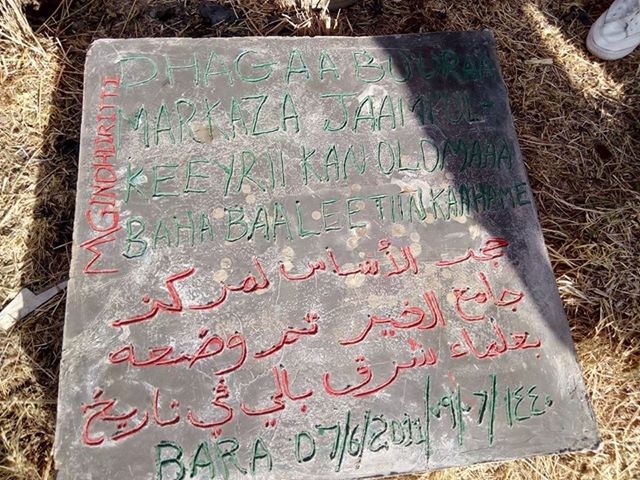 DHAGAA BUURAA
MARKAZA JAAMIKUL-
KEEYRII KAN OLOMAAA
BAHA BAALEETIIN KAAHAME
حجر الأساس لمركز
جامع الخير تم وضعه
بعلماء شرق بالي في تاريخ
BARA 07/6/2011/٠٩/٠٦/١٤٤٠